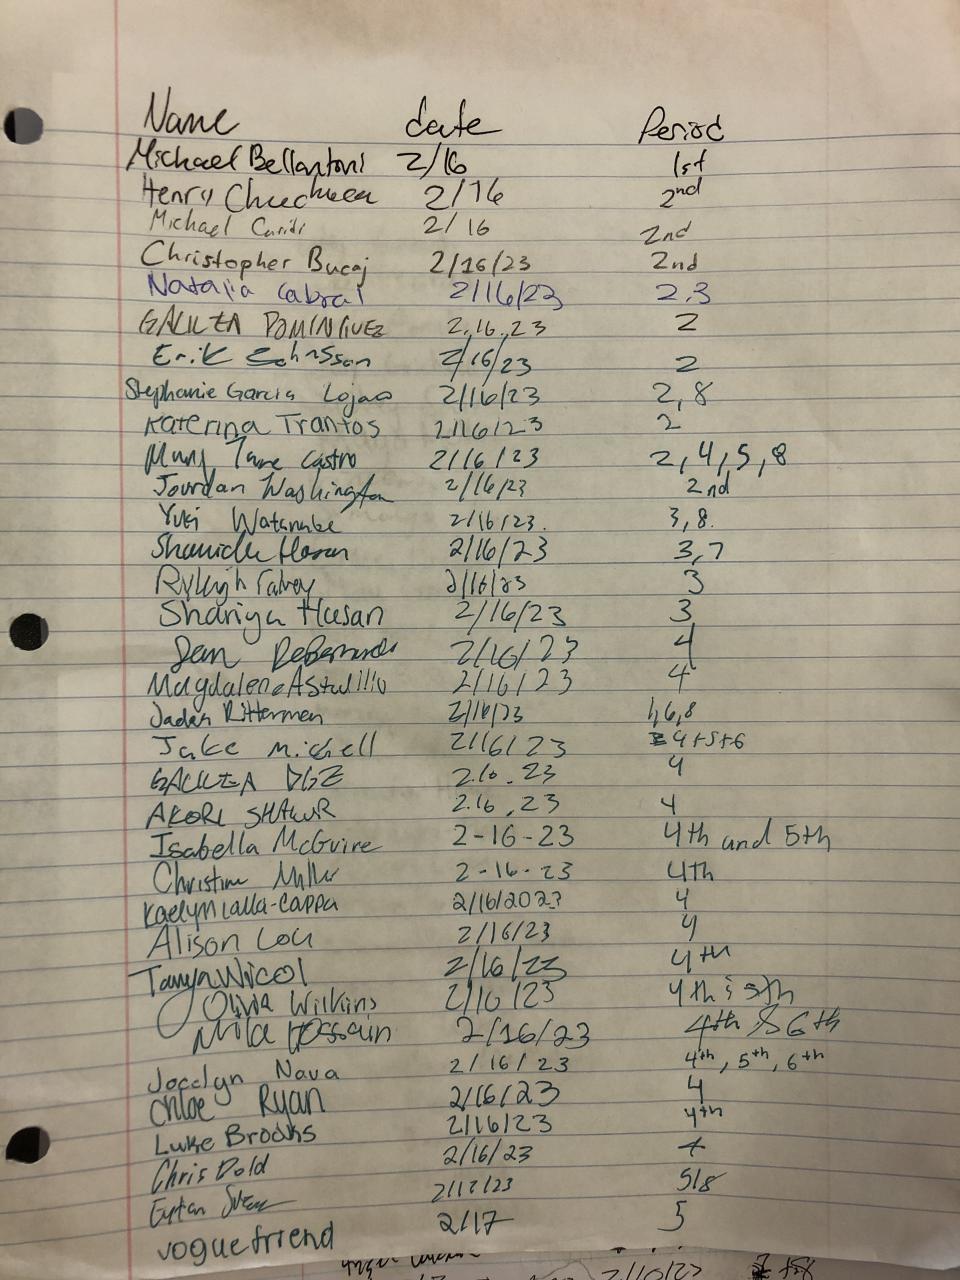 Name date Period
Michael Bellantoni 2/16 1st
Henry 2/16 2nd
Michael 2/16 2nd
Christopher Bucaj 2/16/23 2nd
Natalia Cabral 2/16/23 2,3
2.16.23 2
Erik 2/16/23 2
Stephanie Garcia 2/16/23 2,8
Katerina Trantos 2/16/23 2
Castro 2/16/23 2,4,5,8
Jourdan Washington 2/16/23 2nd
Yuki Watanabe 2/16/23. 3,8.
2/16/23 3,7
2/16/23 3
Shariya Hasan 2/16/23 3
2/16/23 4
2/16/23 4
Jaden Ritterman 2/16/23 1,6,8
Jake 2/16/23 4+5+6
4
AKORI 2.16.23 4
Isabella McGuire 2-16-23 4th and 5th
Miller 2-16-23 4th
Kaelyn Lalla-Cappa 2/16/2023 4
Alison Lou 2/16/23 4
Tanya Nicol 2/16/23 4th
Olivia Wilkins 2/16/23 4th & 5th
Mila Hossain 2/16/23 4th & 6th
Jocelyn Nava 2/16/23 4th, 5th, 6th
Chloe Ryan 2/16/23 4
Luke Brooks 2/16/23 4th
Chris Dold 2/16/23 4
Eytan 5/8
voguefriend 2/17 5